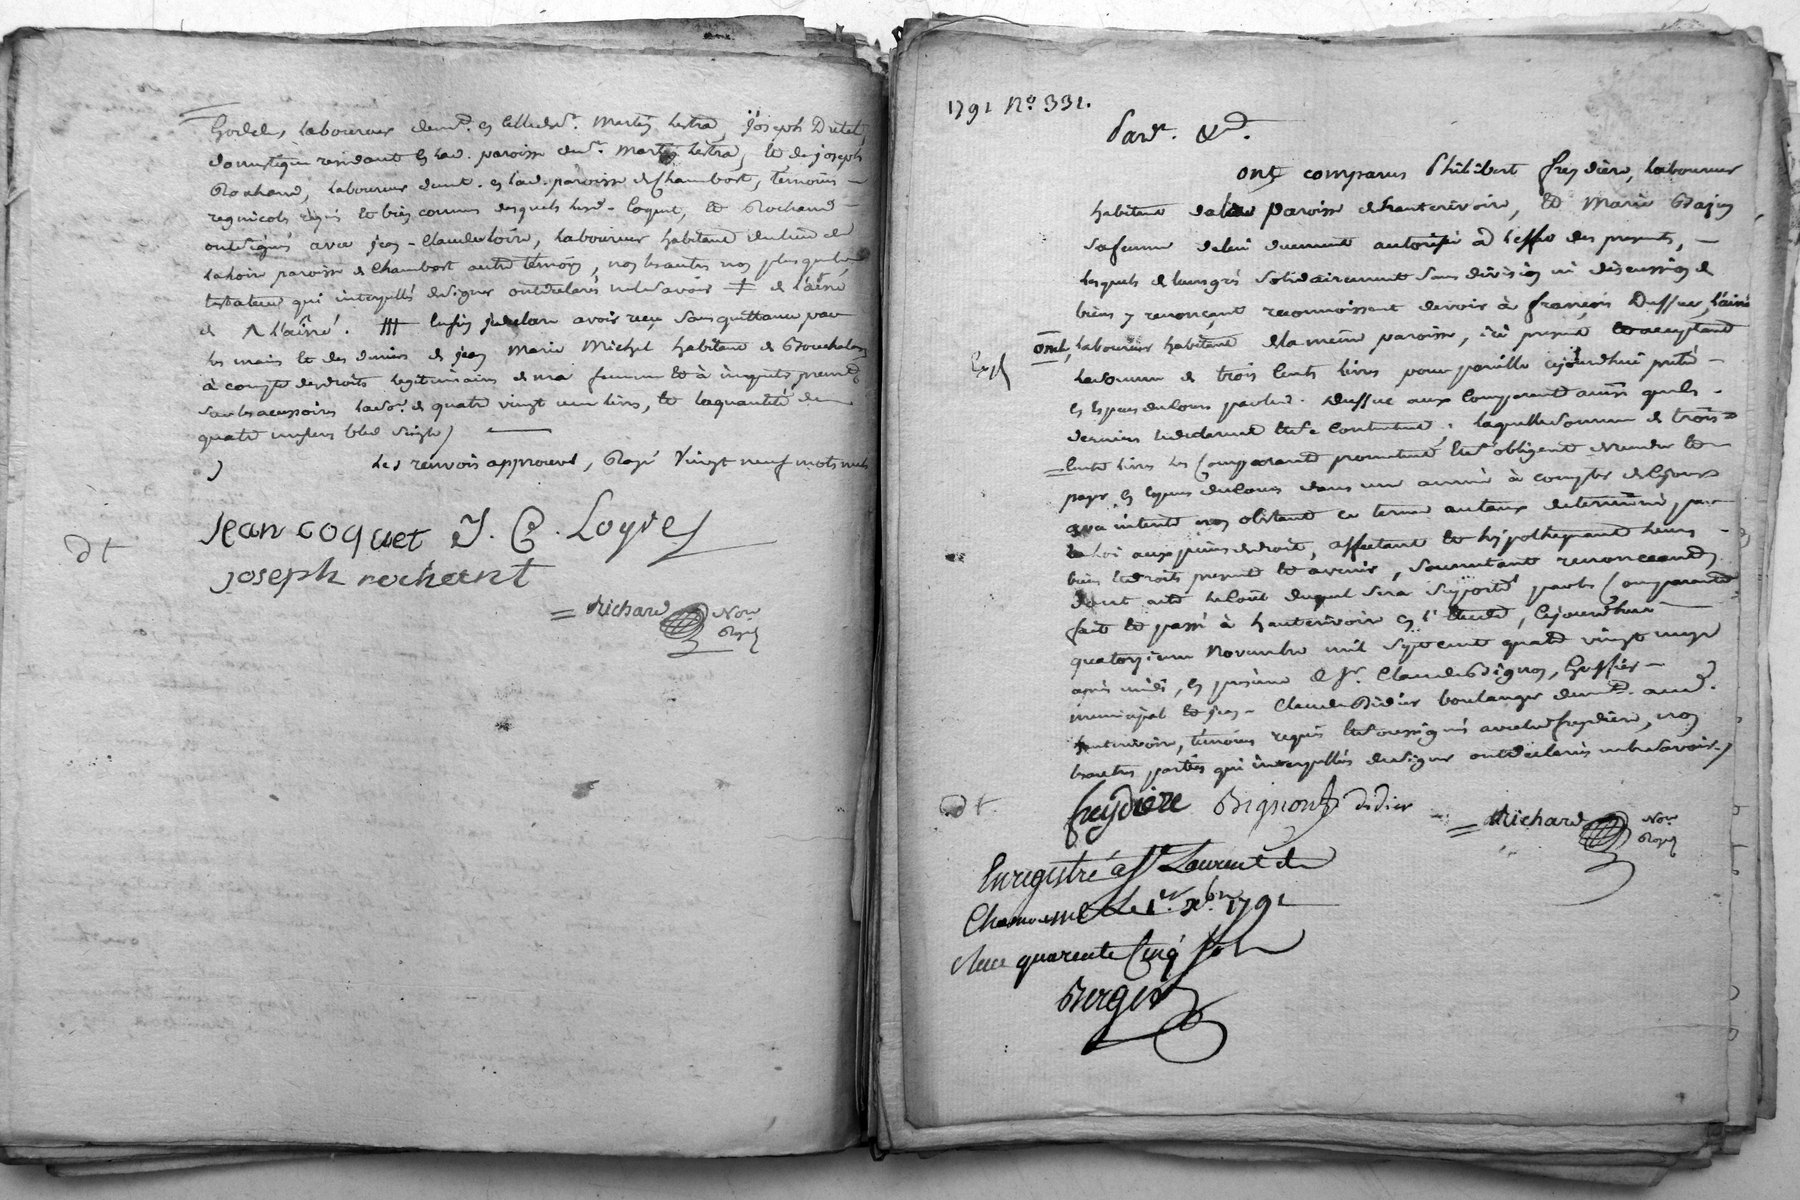 laboureur demt. en celle de St. Martin Lestra, Joseph
domestique residant en lad. paroisse de St. Martin Lestra, et de joseph
Rochand, laboureur demt. en lad. paroisse de Chambost, temoins
regnicoles requis et bien connus desquels led. Coquet, et Rochand
ont signés avec jean-Claude Loire, laboureur habitant du lieu de
paroisse de Chambost autre temoin, non les autres non plus que le
testateur qui interpellés de signer ont declarés ne le savoir ‡ de l'ainé
de l'ainé. enfin je declare avoir reçu sans quittance par
les mains et des deniers de jean Marie Michel habitant de
à compte des droits legitimaires de ma femme et à
sans les accessoires la so. de quatre vingt un livres, et la quantité de
quatre bled seigle)
Les renvois approuvés, Rayé Vingt neuf mots nuls
Jean coquet J. C. Loyre
joseph rochant
dt
Richard Nore
Royal
1791 No. 331.
Pard. &d.
ont comparus Philibert freydière, laboureur
habitant de la paroisse d'hauterivoire, et Marie
sa femme de lui duement autorisée à l'effet des presents,
lesquels de leurs grés solidairement sans division ni discussion de
biens y renonçant reconnoissent devoir à françois Dussuc, l'ainé
laboureur habitant de la même paroisse, ici present et acceptant
la somme de trois cents livres pour pareille cejourdhui prêté
en especes de cours par led. Dussuc aux Comparants ainsi qu'ils
derniers le declarent et s'en contentent; laquelle somme de trois
cents livres les Comparants promettent et s'obligent de rendre et
payer en especes de cours dans une année à compter de ce jour
avec interets non obstant ce terme au taux determiné par
la loi aux peines de droit, affectant et hypothequant leurs
biens et droits presents et avenir, soumettant renonceant
dont acte le coût duquel sera supporté par les Comparants
fait et passé à hauterivoire en l'etude, cejourdhui
quatorzieme Novembre mil sept cent quatre vingt onze
après midi, en presence de Sr. Claude Bignon, Greffier
municipal et jean-Claude Didier boulanger demt. aud.
hauterivoire, temoins requis et soussignés avec led. freydière, non
les autres parties qui interpellés de signer ont declarés ne le savoir)
freydiere Bignon didier
dt
Richard Nore
Royal
Enregistré a St Laurent de
Chamousset Le 1er. Xbre. 1791
Receu quarente Cinq sols
Berger